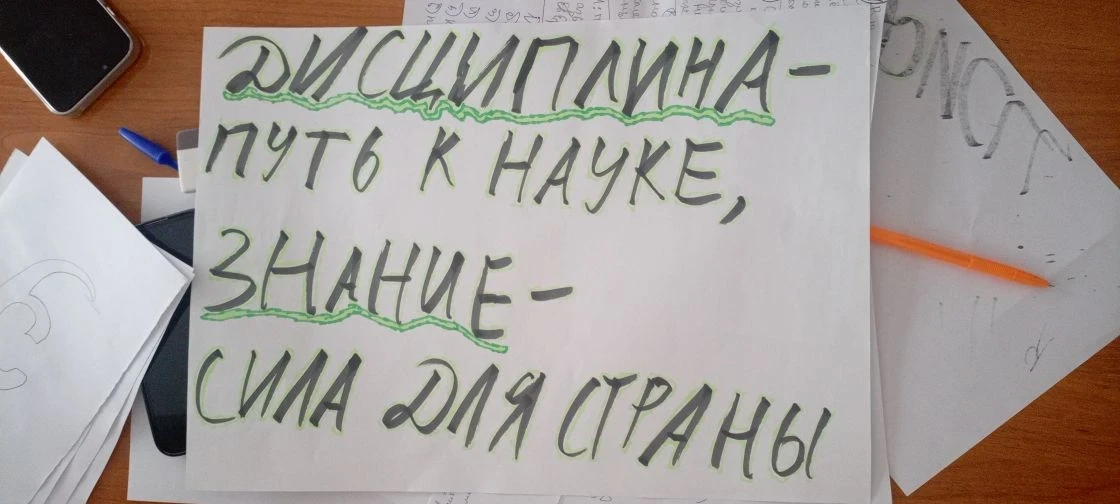 ДИСЦИПЛИНА-
ПУТЬ К НАУКЕ,
ЗНАНИЕ-
СИЛА ДЛЯ СТРАНЫ